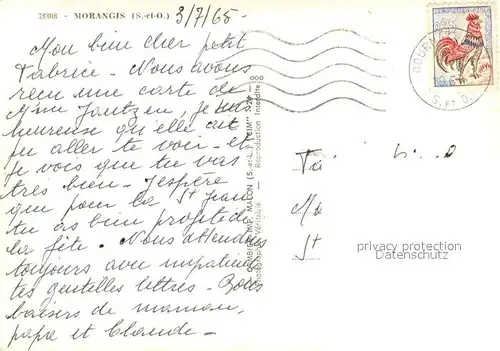 28308 - MORANGIS (S.-et-O.)
3/7/65-
Mon bien cher petit
Fabrice - Nous avons
reçu une carte de
Mme Jautzen je suis
heureuse qu'elle ait
pu aller te voir - et
je vois que tu vas
très bien - J'espère
que pour la St Jean
tu as bien profité de
la fête - Nous attendons
toujours avec impatience
tes gentelles lettres - Bons
baisers de maman,
papa et Claude -
COMBIER IMP. MACON (S.-et-L.) "CIM"
Photographie Véritable - Reproduction Interdite
S. ET O.
St
privacy protection
Datenschutz